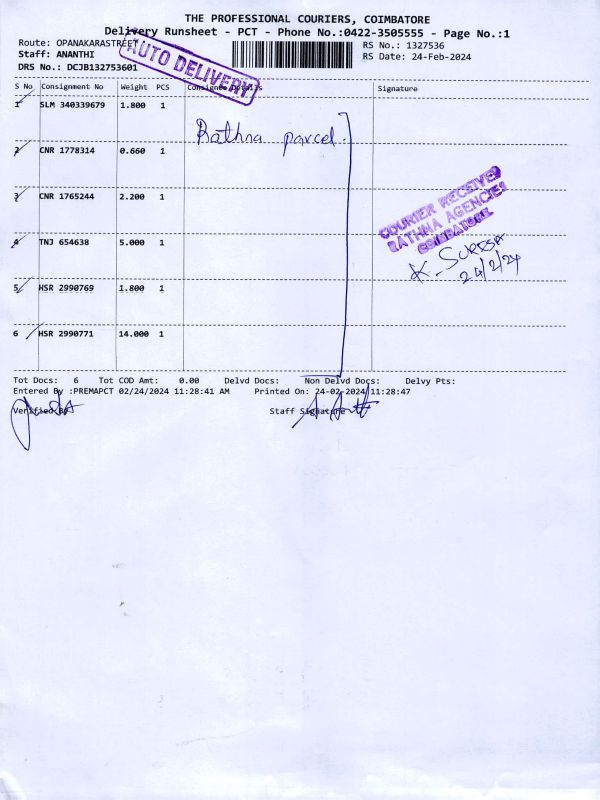 THE PROFESSIONAL COURIERS, COIMBATORE
Delivery Runsheet - PCT - Phone No.:0422-3505555 - Page No.:1
Route: OPANAKARASTREET
RS No.: 1327536
Staff: ANANTHI
RS Date: 24-Feb-2024
DRS No.: DCJB132753601
AUTO DELIVERY
S No Consignment No Weight PCS Consignee Details Signature
1 SLM 340339679 1.800 1
Rathna parcel.
2 CNR 1778314 0.660 1
3 CNR 1765244 2.200 1
COURIER RECEIVED
RATHNA AGENCIES
COIMBATORE
4 TNJ 654638 5.000 1
K. SURESH
24/2/24
5 HSR 2990769 1.800 1
6 HSR 2990771 14.000 1
Tot Docs: 6 Tot COD Amt: 0.00 Delvd Docs: Non Delvd Docs: Delvy Pts:
Entered By :PREMAPCT 02/24/2024 11:28:41 AM Printed On: 24-02-2024 11:28:47
Verified By Staff Signature